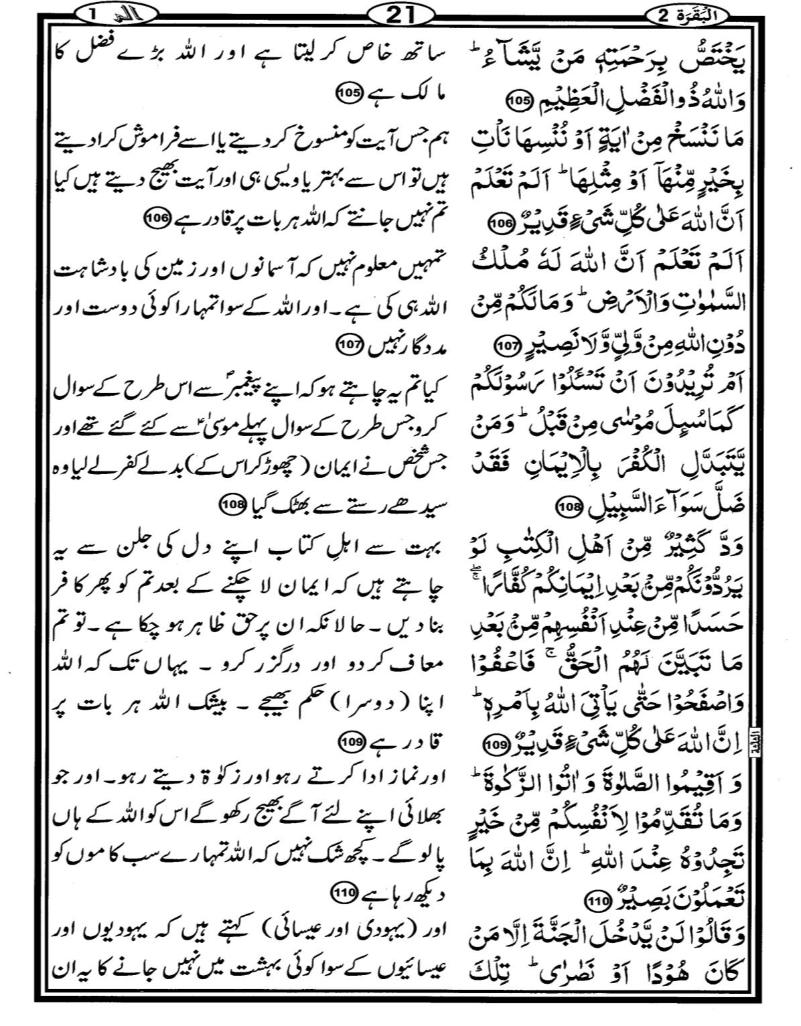 البقرة 2
21
الم 1
يَخْتَصُّ بِرَحْمَتِهٖ مَنْ يَّشَآءُ ؕ
وَاللّٰهُ ذُو الْفَضْلِ الْعَظِيْمِ 105
مَا نَنْسَخْ مِنْ اٰيَةٍ اَوْ نُنْسِهَا نَاْتِ
بِخَيْرٍ مِّنْهَآ اَوْ مِثْلِهَا ؕ اَلَمْ تَعْلَمْ
اَنَّ اللّٰهَ عَلٰى كُلِّ شَيْءٍ قَدِيْرٌ 106
اَلَمْ تَعْلَمْ اَنَّ اللّٰهَ لَهٗ مُلْكُ
السَّمٰوٰتِ وَالْاَرْضِ ؕ وَمَا لَكُمْ مِّنْ
دُوْنِ اللّٰهِ مِنْ وَّلِيٍّ وَّلَا نَصِيْرٍ 107
اَمْ تُرِيْدُوْنَ اَنْ تَسْـَٔلُوْا رَسُوْلَكُمْ
كَمَا سُىِٕلَ مُوْسٰى مِنْ قَبْلُ ؕ وَمَنْ
يَّتَبَدَّلِ الْكُفْرَ بِالْاِيْمَانِ فَقَدْ
ضَلَّ سَوَآءَ السَّبِيْلِ 108
وَدَّ كَثِيْرٌ مِّنْ اَهْلِ الْكِتٰبِ لَوْ
يَرُدُّوْنَكُمْ مِّنْۢ بَعْدِ اِيْمَانِكُمْ كُفَّارًا ۖۚ
حَسَدًا مِّنْ عِنْدِ اَنْفُسِهِمْ مِّنْۢ بَعْدِ
مَا تَبَيَّنَ لَهُمُ الْحَقُّ ۚ فَاعْفُوْا
وَاصْفَحُوْا حَتّٰى يَاْتِيَ اللّٰهُ بِاَمْرِهٖ ؕ
اِنَّ اللّٰهَ عَلٰى كُلِّ شَيْءٍ قَدِيْرٌ 109
وَ اَقِيْمُوا الصَّلٰوةَ وَ اٰتُوا الزَّكٰوةَ ؕ
وَمَا تُقَدِّمُوْا لِاَنْفُسِكُمْ مِّنْ خَيْرٍ
تَجِدُوْهُ عِنْدَ اللّٰهِ ؕ اِنَّ اللّٰهَ بِمَا
تَعْمَلُوْنَ بَصِيْرٌ 110
وَقَالُوْا لَنْ يَّدْخُلَ الْجَنَّةَ اِلَّا مَنْ
كَانَ هُوْدًا اَوْ نَصٰرٰى ؕ تِلْكَ
ساتھ خاص کر لیتا ہے اور اللہ بڑے فضل کا
مالک ہے 105
ہم جس آیت کو منسوخ کر دیتے یا اسے فراموش کرا دیتے
ہیں تو اس سے بہتر یا ویسی ہی اور آیت بھیج دیتے ہیں کیا
تم نہیں جانتے کہ اللہ ہر بات پر قادر ہے 106
تمہیں معلوم نہیں کہ آسمانوں اور زمین کی بادشاہت
اللہ ہی کی ہے۔ اور اللہ کے سوا تمہارا کوئی دوست اور
مددگار نہیں 107
کیا تم یہ چاہتے ہو کہ اپنے پیغمبرؐ سے اس طرح کے سوال
کرو جس طرح کے سوال پہلے موسیٰؑ سے کئے گئے تھے اور
جس شخص نے ایمان (چھوڑ کر اس کے) بدلے کفر لے لیا وہ
سیدھے رستے سے بھٹک گیا 108
بہت سے اہل کتاب اپنے دل کی جلن سے یہ
چاہتے ہیں کہ ایمان لا چکنے کے بعد تم کو پھر کافر
بنا دیں۔ حالانکہ ان پر حق ظاہر ہو چکا ہے۔ تو تم
معاف کر دو اور درگزر کرو ۔ یہاں تک کہ اللہ
اپنا (دوسرا) حکم بھیجے ۔ بیشک اللہ ہر بات پر
قادر ہے 109
اور نماز ادا کرتے رہو اور زکوٰۃ دیتے رہو۔ اور جو
بھلائی اپنے لئے آگے بھیج رکھو گے اس کو اللہ کے ہاں
پالو گے۔ کچھ شک نہیں کہ اللہ تمہارے سب کاموں کو
دیکھ رہا ہے 110
اور (یہودی اور عیسائی) کہتے ہیں کہ یہودیوں اور
عیسائیوں کے سوا کوئی بہشت میں نہیں جانے کا یہ ان
الثلثة